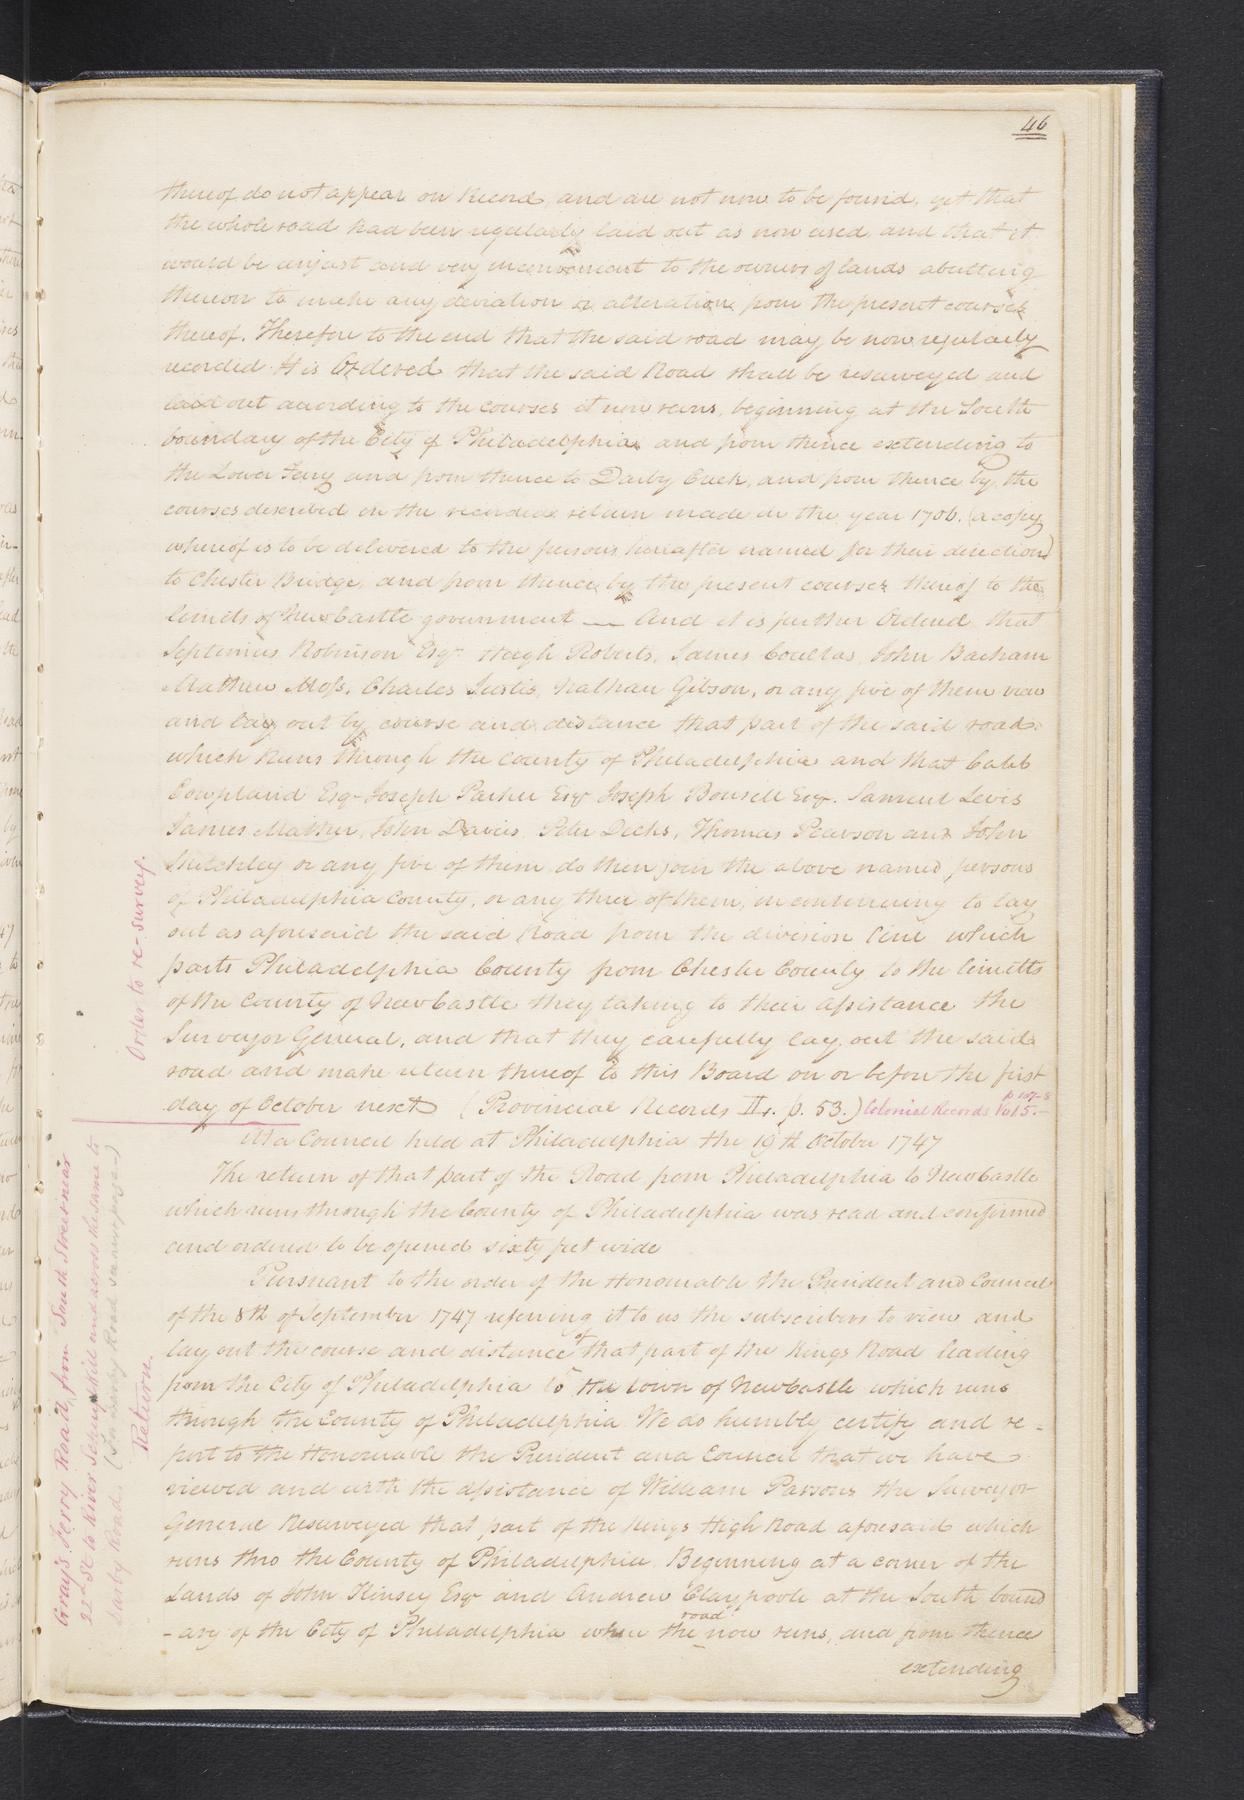 46
thereof do not appear on Record, and are not now to be found, yet that
the whole road had been regularly laid out as now used, and that it
would be unjust and very inconvenient to the owners of lands abutting
thereon to make any deviation or alteration from the present courses
thereof. Therefore to the end that the said road may be now regularly
recorded It is Ordered that the said Road shall be resurveyed and
laid out according to the courses it now runs, beginning at the South
boundary of the City of Philadelphia and from thence extending to
the Lower Ferry and from thence to Darby Creek, and from thence by the
courses described in the recorded return made in the year 1706. (a copy
whereof is to be delivered to the persons hereafter named for their direction)
to Chester Bridge, and from thence by the present courses thereof to the
limits of New Castle government — And it is further Ordered that
Septimus Robinson Esqr. Hugh Roberts, James Coultas, John Bacham
Mathew Moss, Charles Justis, Nathan Gibson, or any five of them view
and lay out by course and distance that part of the said road
which Runs through the County of Philadelphia and that Caleb
Cowpland Esq. Joseph Parker Esqr Joseph Bonsell Esqr. Samuel Levis
James Mather, John Davies, Peter Dicks, Thomas Pearson and John
or any five of them do then join the above named persons
of Philadelphia County, or any three of them, in concurring to lay
out as aforesaid the said Road from the division line which
parts Philadelphia County from Chester County to the limitts
of the County of New Castle they taking to their assistance the
Surveyor General, and that they carefully lay out the said
road and make return thereof to this Board on or before the first
day of October next (Provincial Records II. p. 53.) Colonial Records Vol 5. p 107-8
At a Council held at Philadelphia the 19th October 1747
The return of that part of the Road from Philadelphia to New Castle
which runs through the County of Philadelphia was read and confirmed
and ordered to be opened sixty feet wide
Pursuant to the order of the Honourable the President and Council
of the 8th of September 1747 referring it to us the subscribers to view and
lay out the course and distance of that part of the Kings Road leading
from the City of Philadelphia to the town of New Castle which runs
through the County of Philadelphia We do humbly certify and re-
port to the Honourable the President and Council that we have
viewed and with the assistance of William Parsons the Surveyor
General Resurveyed that part of the Kings High Road aforesaid which
runs thro the County of Philadelphia Beginning at a corner of the
Lands of John Kinsey Esqr and Andrew Claypoole at the South bound
-ary of the City of Philadelphia where the road now runs, and from thence
extending
Order to re-survey.
Gray's Ferry Road, from South Street near
22nd St. to River Schuylkill and across the same to
Darby Road. (To Darby Road
Return.